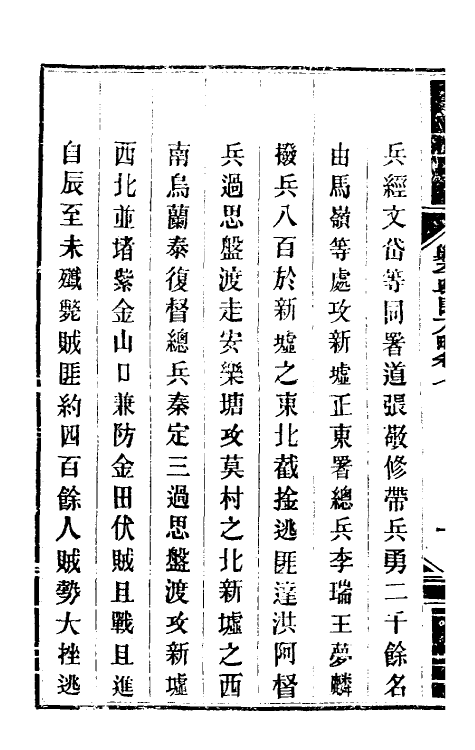 兵經文岱等同署道張敬修帶兵勇二千餘名
由馬嶺等處攻新墟正東署總兵李瑞王夢麟
撥兵八百於新墟之東北截拴逃匪達洪阿督
兵過思盤渡走安樂塘攻莫村之北新墟之西
南烏蘭泰復督總兵秦定三過思盤渡攻新墟
西北並堵紫金山口兼防金田伏賊且戰且進
自辰至未殲斃賊匪約四百餘人賊勢大挫逃